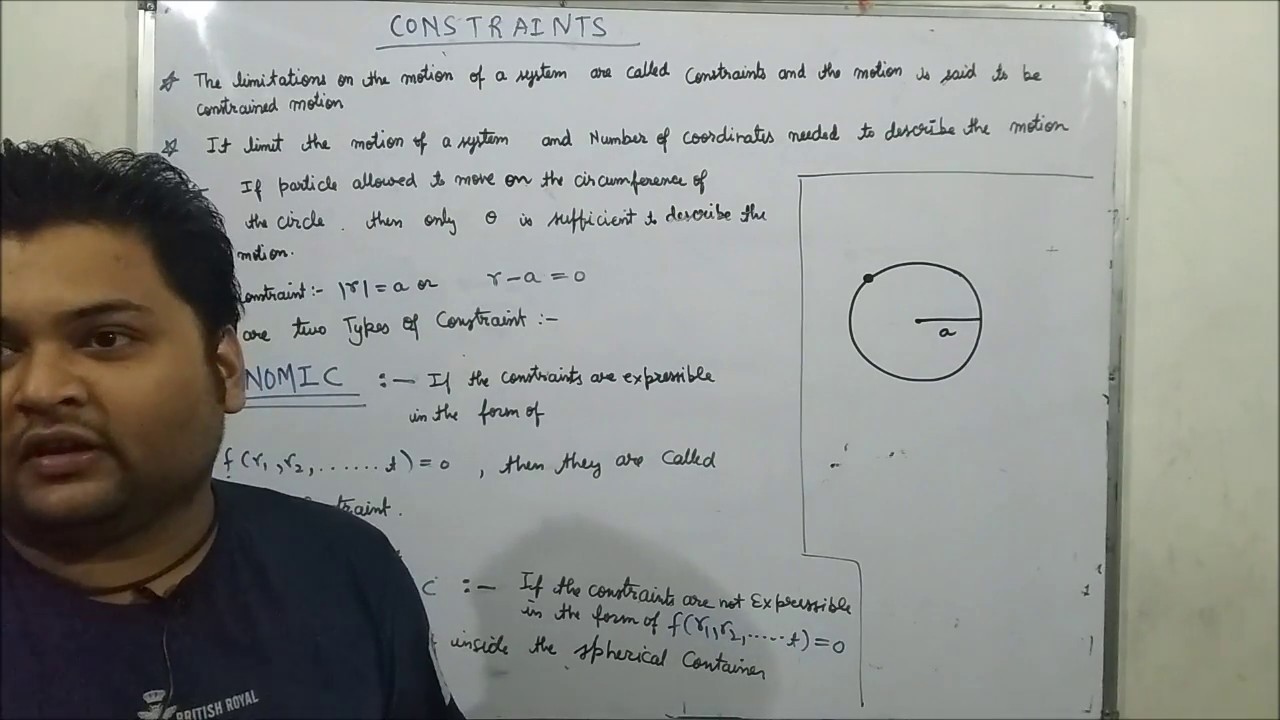 CONSTRAINTS
☆ The limitations on the motion of a system are called Constraints and the motion is said to be
constrained motion
☆ It limit the motion of a system and Number of coordinates needed to describe the motion
If particle allowed to move on the circumference of
the circle . then only θ is sufficient to describe the
motion.
onstraint:- |r| = a or r - a = 0
are two Types of Constraint :-
NOMIC :- If the constraints are expressible
in the form of
f(r₁, r₂, ...... t) = 0 , then they are called
traint.
C :- If the constraints are not Expressible
in the form of f(r₁, r₂, ..... t) = 0
inside the spherical Container
a
BRITISH ROYAL